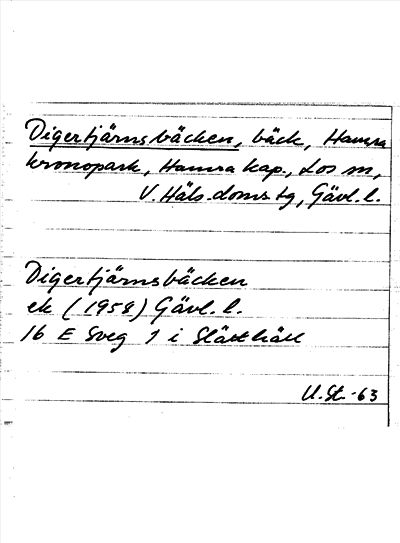 Digertjärnsbäcken, bäck, Hamra
kronopark, Hamra kap., Los sn,
V. Häls. doms tg, Gävl. l.
Digertjärnsbäcken
ek (1958) Gävl. l.
16 E Sveg 1 i Slätthäll
U.St. -63